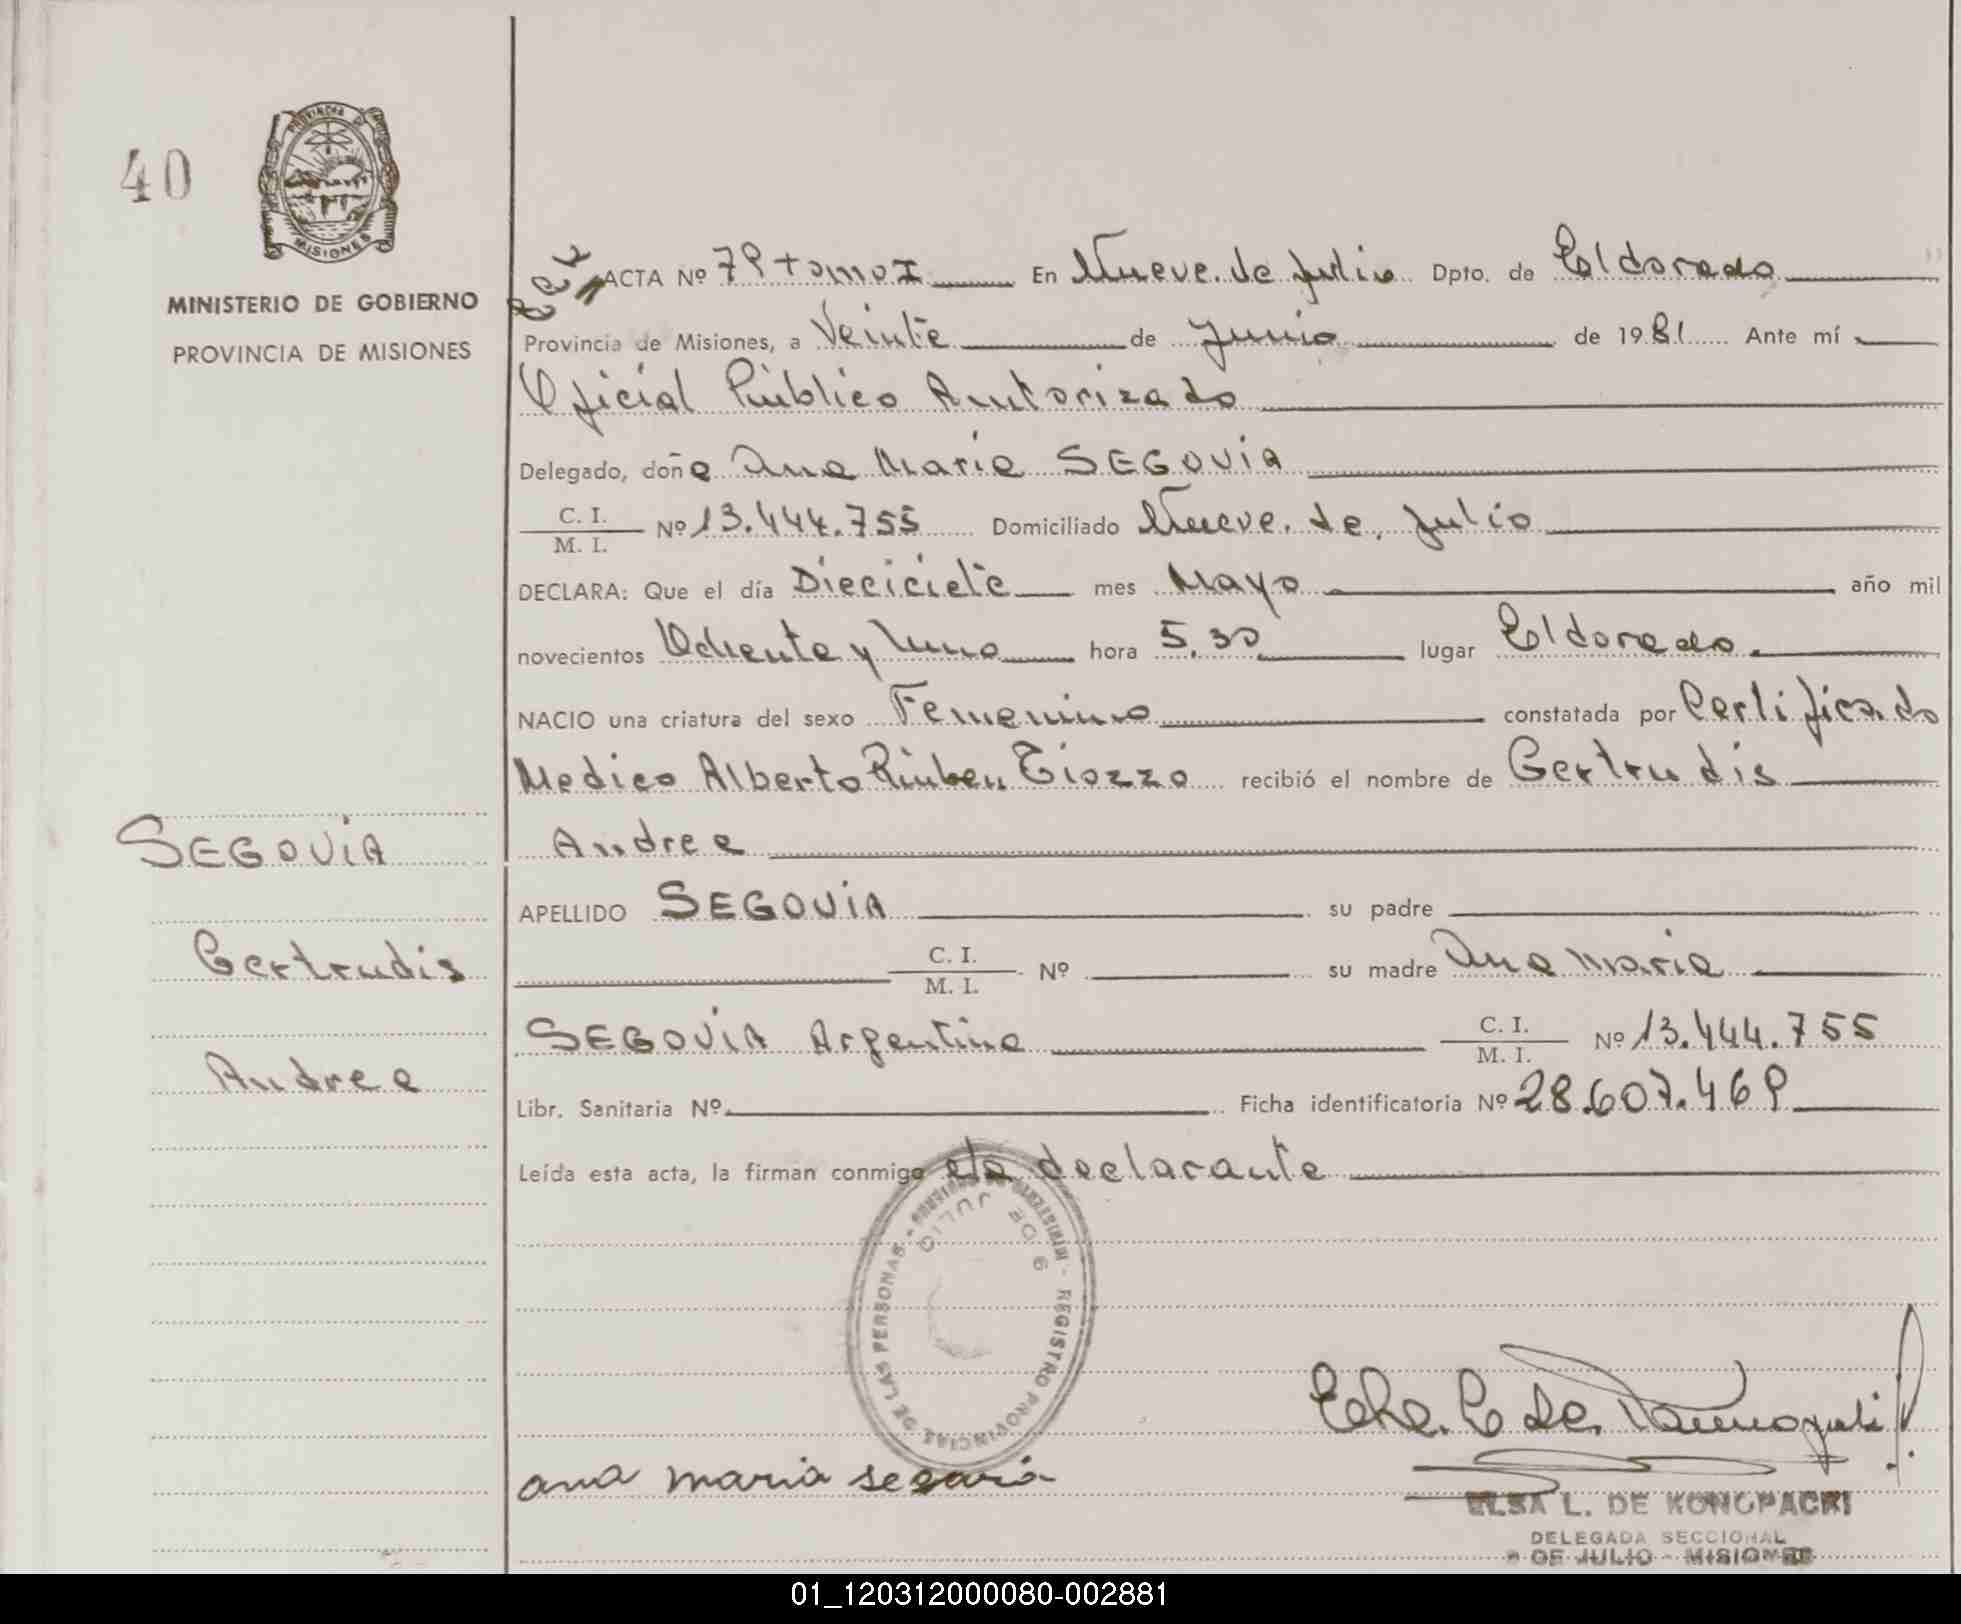 40
PROVINCIA DE
MISIONES
MINISTERIO DE GOBIERNO
PROVINCIA DE MISIONES
ACTA Nº 79 tomo I En Nueve de Julio Dpto. de Eldorado
Provincia de Misiones, a Veinte de Junio de 1981 Ante mí
Oficial Público Autorizado
Delegado, doña Ana María SEGOVIA
C. I.
M. I. Nº 13.444.755 Domiciliado Nueve de Julio
DECLARA: Que el día Dieciciete mes Mayo año mil
novecientos Ochenta y Uno hora 5.30 lugar Eldorado
NACIO una criatura del sexo Femenino constatada por Certificado
Medico Alberto Rúben Tiozzo recibió el nombre de Gertrudis
Andrea
APELLIDO SEGOVIA su padre
C. I.
M. I. Nº su madre Ana María
SEGOVIA Argentina C. I.
M. I. Nº 13.444.755
Libr. Sanitaria Nº Ficha identificatoria Nº 28.607.469
Leída esta acta, la firman conmigo la declarante
SEGOVIA
Gertrudis
Andrea
REGISTRO PROVINCIAL DE LAS PERSONAS
9 DE JULIO
ana maria segovia
ELSA L. DE KONOPACKI
DELEGADA SECCIONAL
9 DE JULIO - MISIONES
01_120312000080-002881